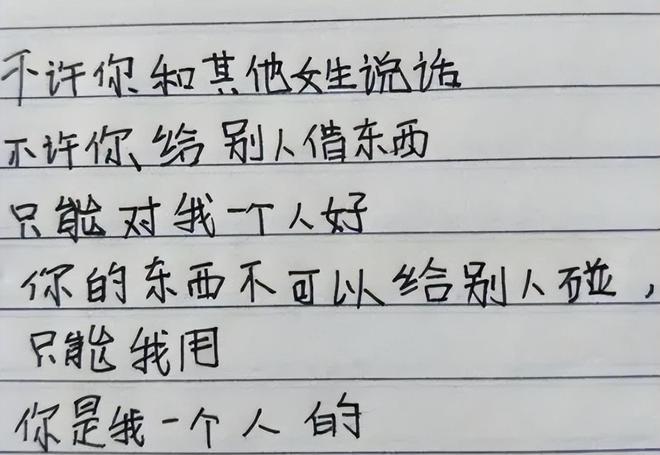 不许你和其他女生说话
不许你给别人借东西
只能对我一个人好
你的东西不可以给别人碰，
只能我用
你是我一个人的